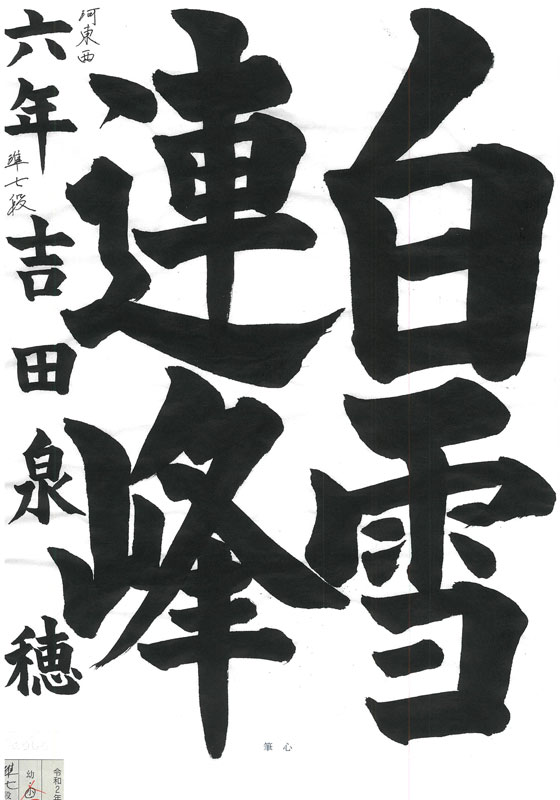 白雪
連峰
河東西
六年 吉田泉穂
準七段
心筆
令和2年
幼
準七段